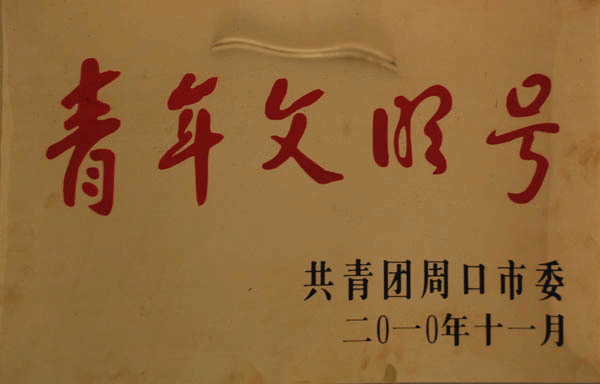 青年文明号
共青团周口市委
二〇一〇年十一月